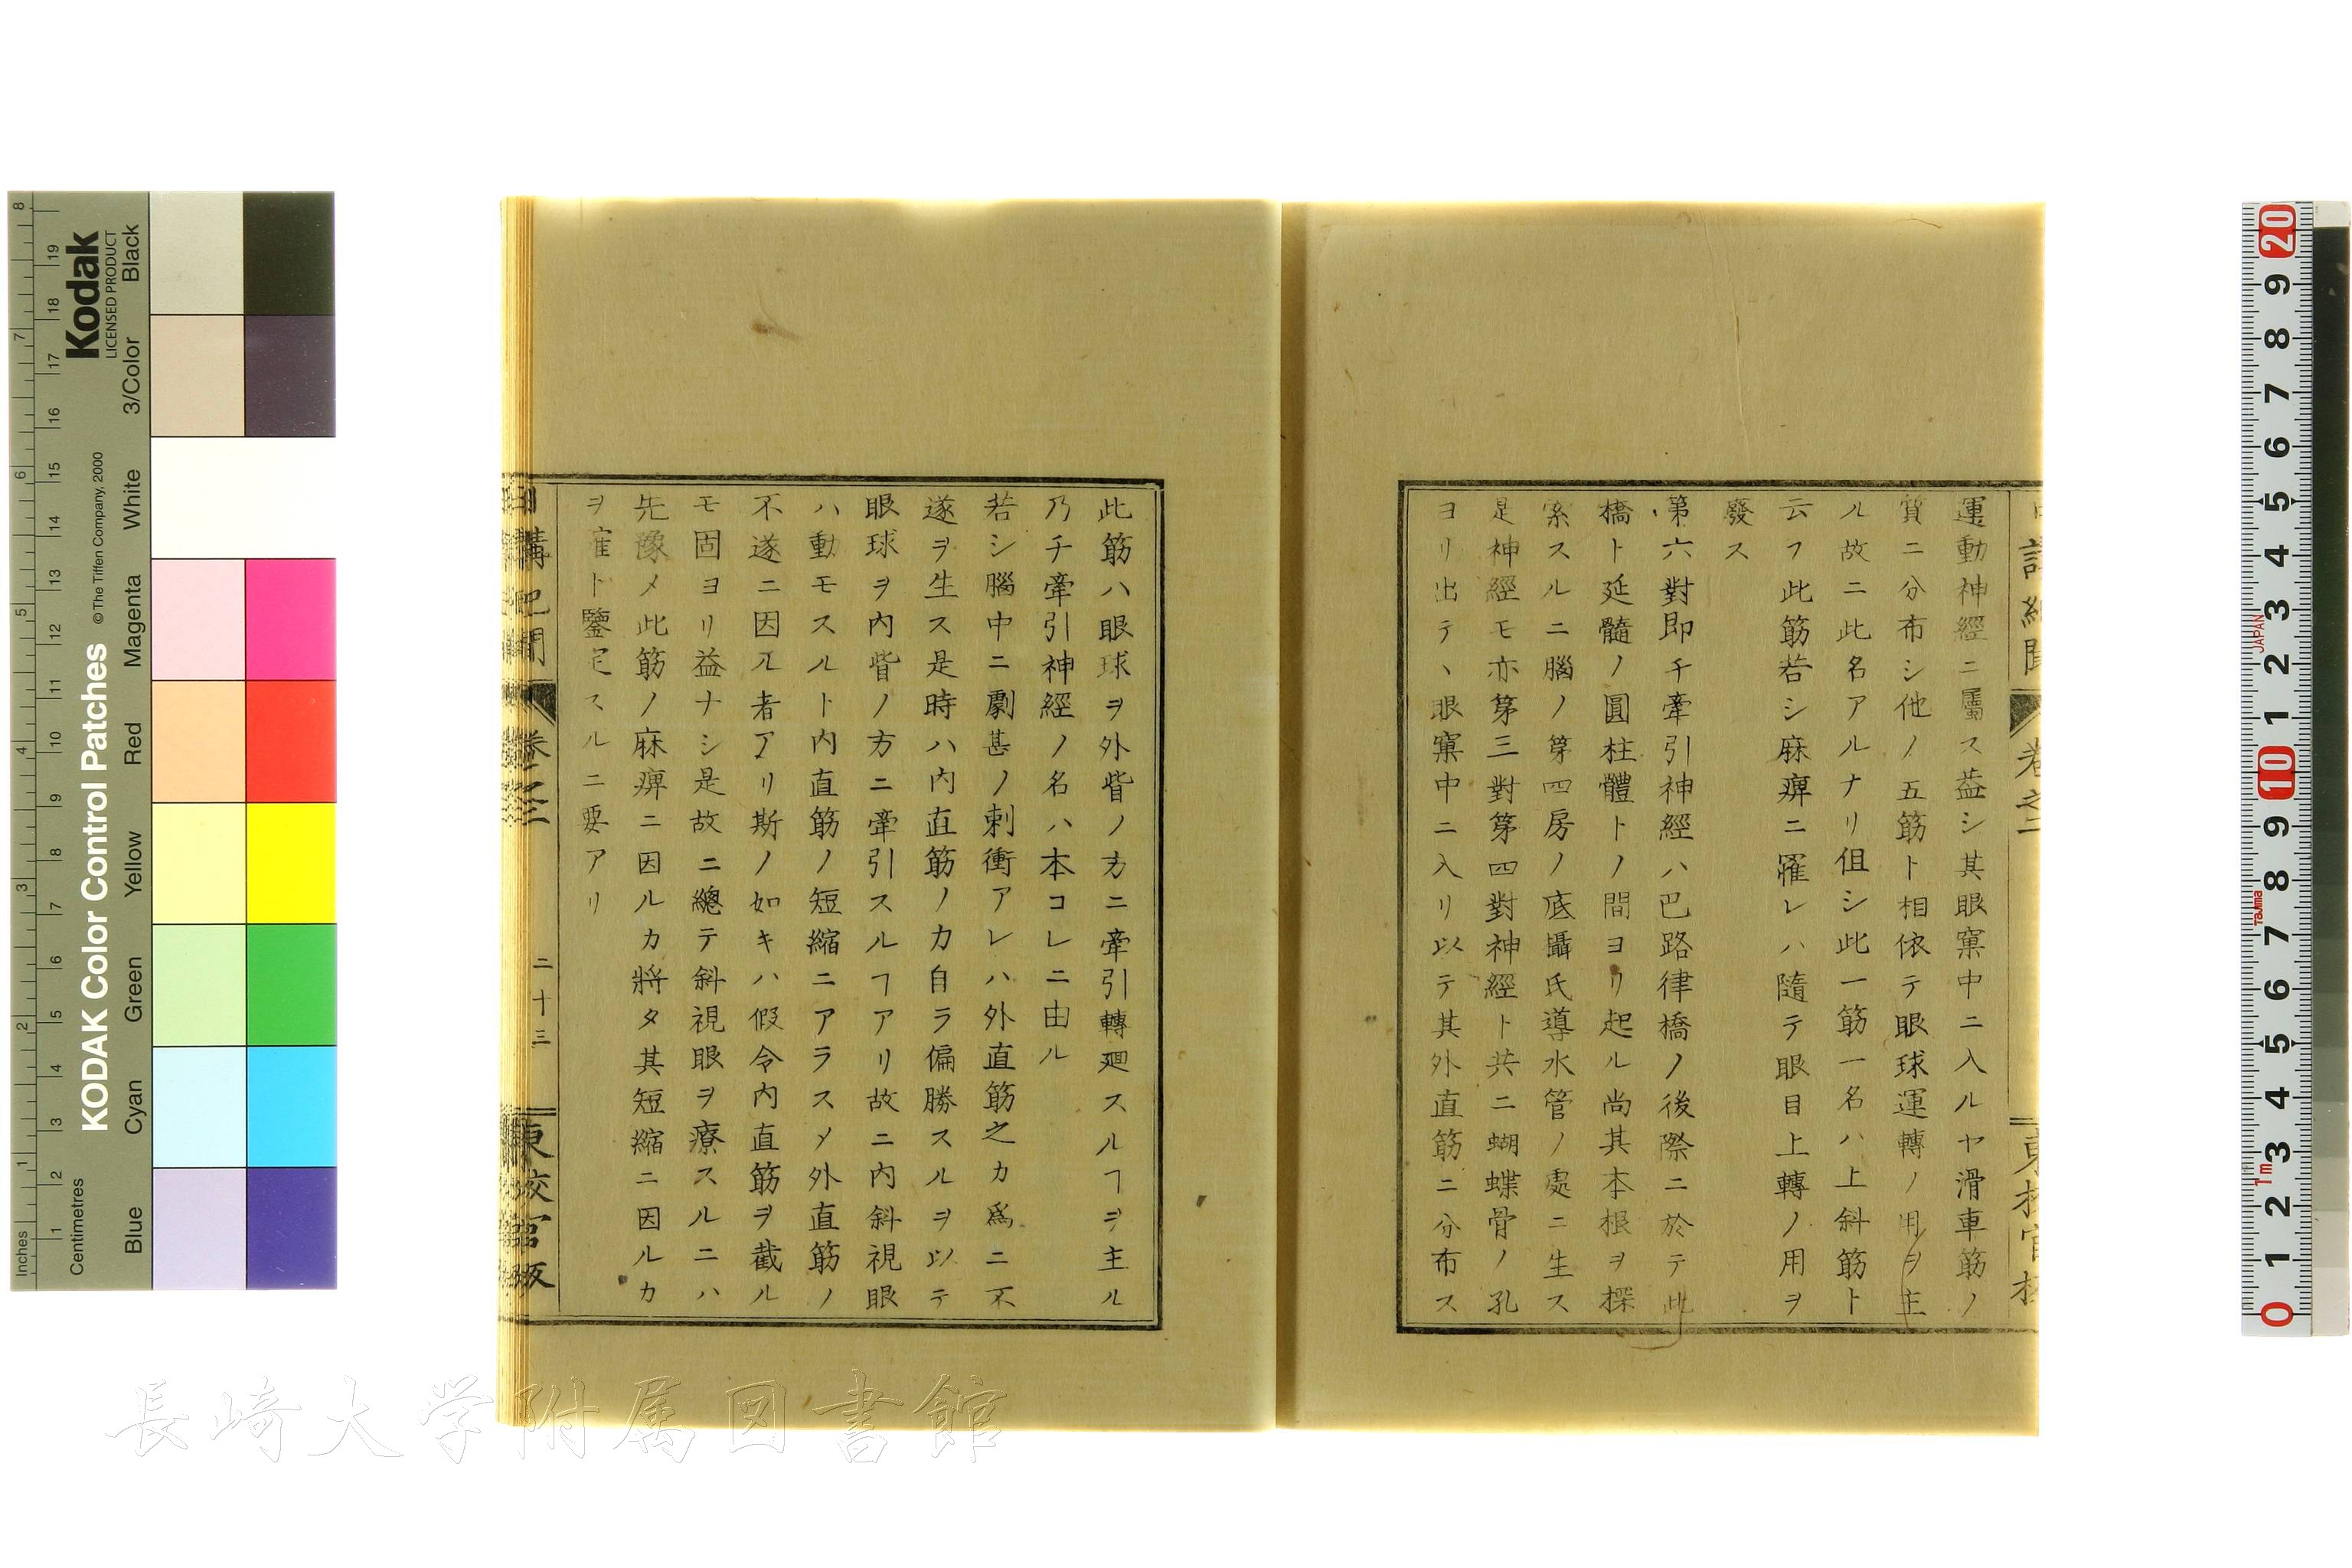 運動神經ニ屬ス益シ其眼窠中ニ入ルヤ滑車筋ノ
質ニ分布シ他ノ五筋ト相依テ眼球運轉ノ用ヲ主
ル故ニ此名アルナリ伹シ此一筋一名ハ上斜筋ト
云フ此筋若シ麻痹ニ罹レハ隨テ眼目上轉ノ用ヲ
廢ス
第六對即チ牽引神經ハ巴路律橋ノ後際ニ於テ此
橋ト延髓ノ圓柱體トノ間ヨリ起ル尚其本根ヲ探
索スルニ腦ノ第四房ノ底攝氏導水管ノ處ニ生ス
是神經モ亦第三對第四對神經ト共ニ蝴蝶骨ノ孔
ヨリ出テヽ眼窠中ニ入リ以テ其外直筋ニ分布ス
此筋ハ眼球ヲ外眥ノ方ニ牽引轉廻スルヿヲ主ル
乃チ牽引神經ノ名ハ本コレニ由ル
若シ腦中ニ劇甚ノ刺衝アレハ外直筋之カ爲ニ不
遂ヲ生ス是時ハ内直筋ノ力自ラ偏勝スルヲ以テ
眼球ヲ内眥ノ方ニ牽引スルヿアリ故ニ内斜視眼
ハ動モスルト内直筋ノ短縮ニアラスメ外直筋ノ
不遂ニ因ル者アリ斯ノ如キハ假令内直筋ヲ截ル
モ固ヨリ益ナシ是故ニ總テ斜視眼ヲ療スルニハ
先豫メ此筋ノ麻痹ニ因ルカ將タ其短縮ニ因ルカ
ヲ寉ト鑒定スルニ要アリ
卷之二
二十三
東校官板
長崎大学附属図書館
Kodak
LICENSED PRODUCT
KODAK Color Control Patches
© The Tiffen Company, 2000
Inches
Centimetres
Blue
Cyan
Green
Yellow
Red
Magenta
White
3/Color
Black
JAPAN
Tajima
1m